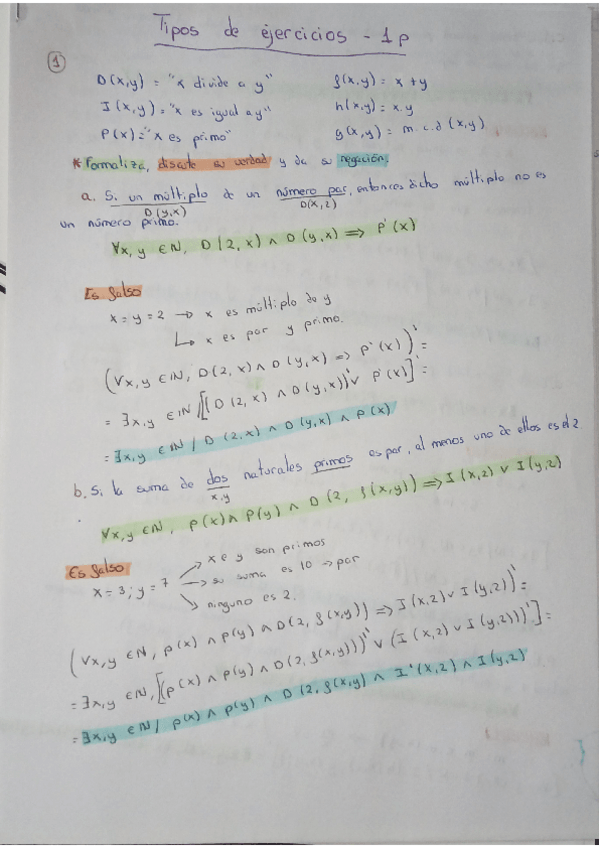 Tipos de ejercicios - 1p
1
D(x,y) = "x divide a y"    f(x,y) = x+y
I(x,y) = "x es igual a y"    h(x,y) = x.y
P(x) = "x es primo"    g(x,y) = m.c.d (x,y)
* Formaliza, discute su verdad y da su negación.
a. Si un múltiplo de un número par, entonces dicho múltiplo no es
D(y,x)    D(x,2)
un número primo.
∀x,y ∈ N, D(2,x) ∧ D(y,x) ⟹ P'(x)
Es falso
x = y = 2 → x es múltiplo de y
↳ x es par y primo.
(∀x,y ∈ N, D(2,x) ∧ D(y,x) ⟹ P'(x))' =
= ∃x,y ∈ N / [(D(2,x) ∧ D(y,x))' ∨ P'(x)]' =
= ∃x,y ∈ N / D(2,x) ∧ D(y,x) ∧ P(x)
b. Si la suma de dos naturales primos es par, al menos uno de ellos es el 2
x,y
∀x,y ∈ N, P(x) ∧ P(y) ∧ D(2, f(x,y)) ⟹ I(x,2) ∨ I(y,2)
Es falso
x = 3; y = 7
→ x e y son primos
→ su suma es 10 → par
↘ ninguno es 2.
(∀x,y ∈ N, P(x) ∧ P(y) ∧ D(2, f(x,y)) ⟹ I(x,2) ∨ I(y,2))' =
= ∃x,y ∈ N, [(P(x) ∧ P(y) ∧ D(2, f(x,y)))' ∨ (I(x,2) ∨ I(y,2))]' =
= ∃x,y ∈ N / P(x) ∧ P(y) ∧ D(2, f(x,y) ∧ I'(x,2) ∧ I(y,2)